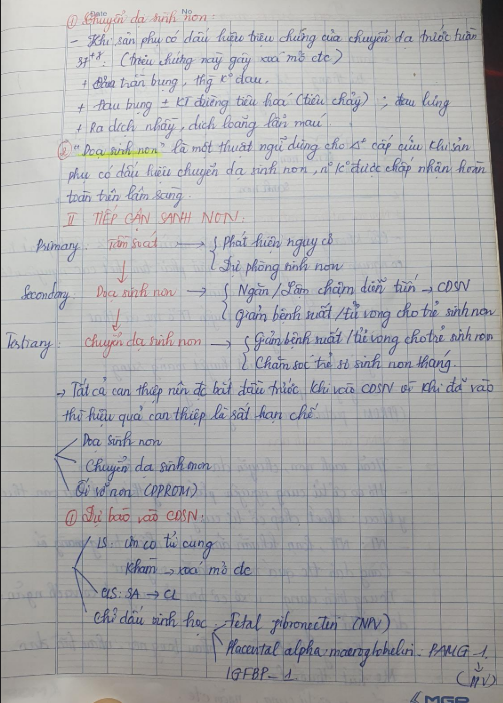 Date No
① Chuyển dạ sinh non:
- Khi sản phụ có dấu hiệu triệu chứng của chuyển dạ trước tuần
37⁺⁰. (triệu chứng này gây xoá mở ctc)
+ trằn bụng, thg k° đau.
+ Đau bụng ± KT đường tiêu hoá (tiêu chảy); đau lưng
+ Ra dịch nhầy, dịch loãng lẫn máu
② "Doạ sinh non" là một thuật ngữ dùng cho Δ° cấp cứu khi sản
phụ có dấu hiệu chuyển dạ sinh non, n° k° được chấp nhận hoàn
toàn trên lâm sàng
II TIẾP CẬN SANH NON.
Primary: Tầm soát → { Phát hiện nguy cơ
Dự phòng sinh non
Secondary: Doạ sinh non → { Ngăn / Làm chậm diễn tiến → CDSN
Giảm bệnh suất / tử vong cho trẻ sinh non
Tertiary: Chuyển dạ sinh non → { Giảm bệnh suất / tử vong cho trẻ sinh non
Chăm sóc trẻ sơ sinh non tháng.
→ Tất cả can thiệp nên đc bắt đầu trước khi vào CDSN vì khi đã vào
thì hiệu quả can thiệp là rất hạn chế
Doạ sinh non
Chuyển dạ sinh non
Ối vỡ non (PPROM)
① Dự báo vào CDSN:
LS: Cơn co tử cung
Khám → xoá mở ctc
CLS: SA → CL
Chỉ dấu sinh học Fetal fibronectin (NPV)
Placental alpha macroglobelin - PAMG-1.
IGFBP-1
MGP